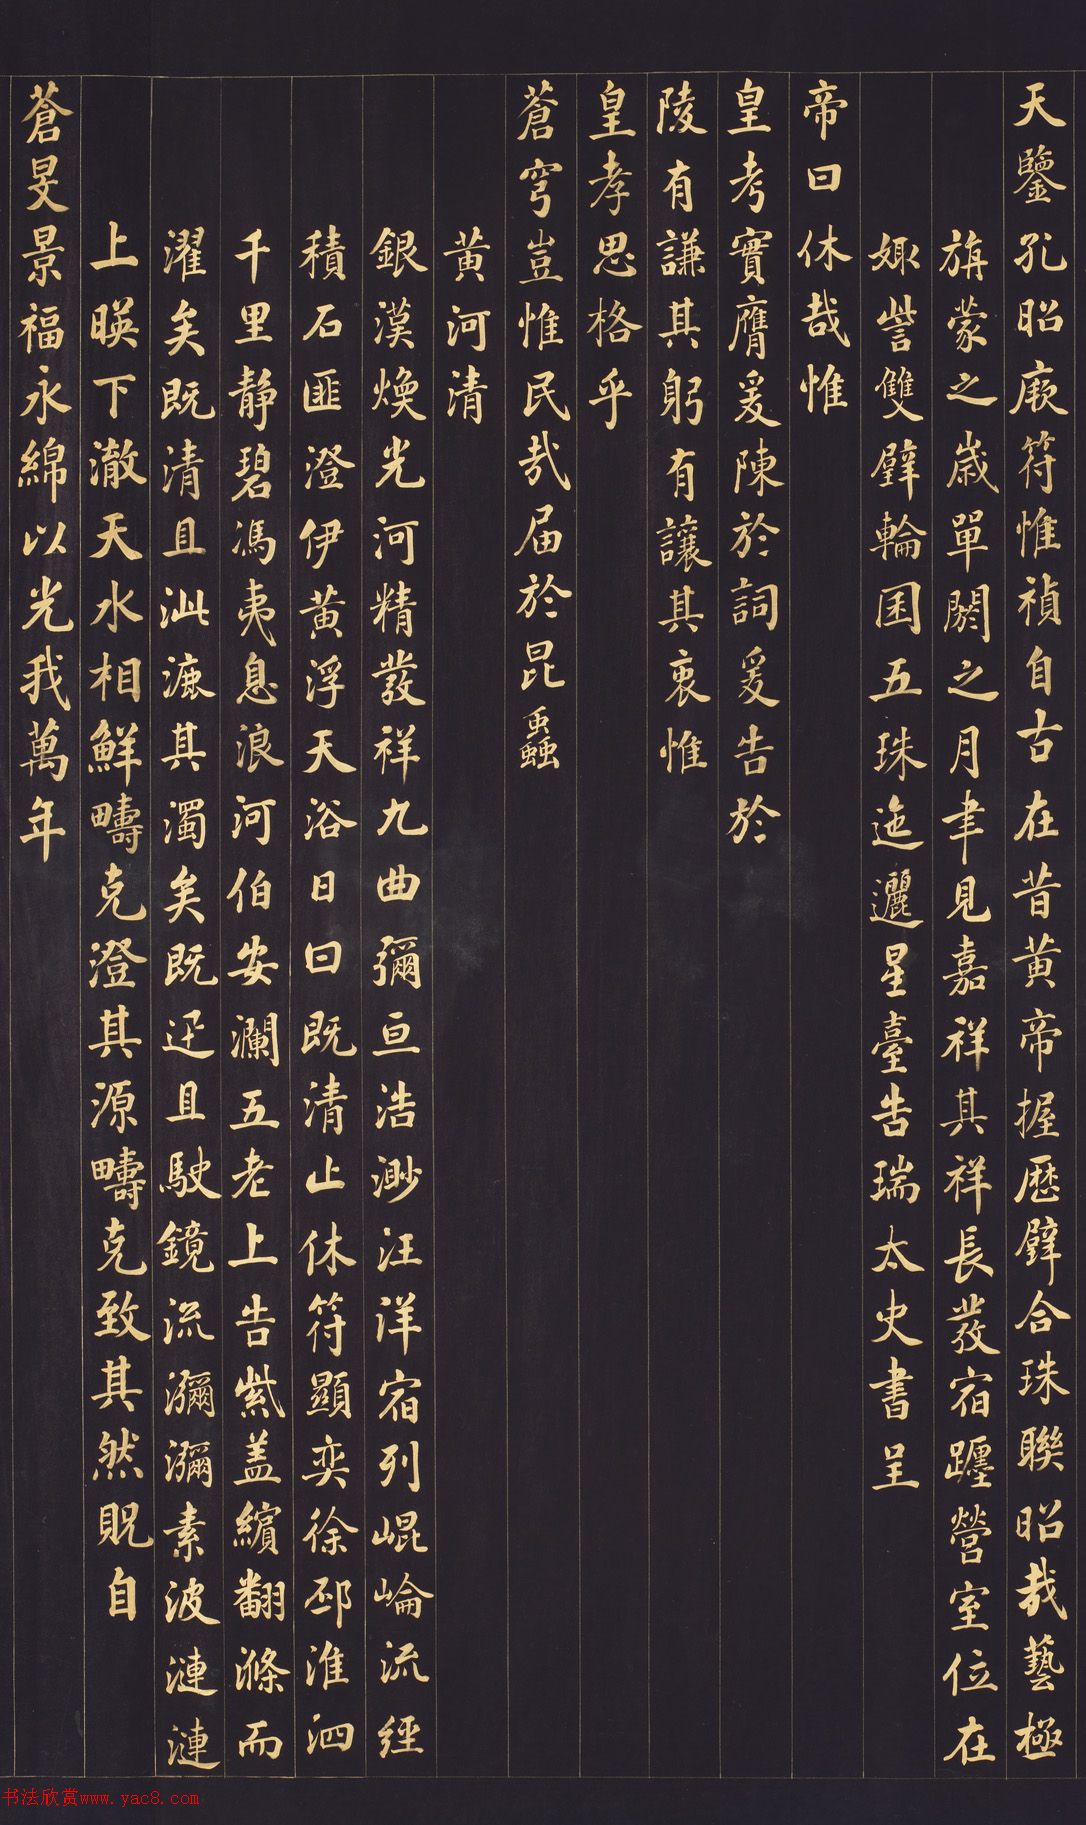 天鑒孔昭厥符惟禎自古在昔黃帝握歷璧合珠聯昭哉藝極
旃蒙之歲單閼之月聿見嘉祥其祥長發宿躔營室位在
娵訾雙璧輪囷五珠迤邐星臺告瑞太史書呈
帝曰休哉惟
皇考實膺爰陳於詞爰告於
陵有謙其躬有讓其衷惟
皇孝思格乎
蒼穹豈惟民哉届於昆蟲
黃河清
銀漢煥光河精發祥九曲彌亘浩渺汪洋宿列崐崘流經
積石匪澄伊黃浮天浴日曰既清止休符顯奕徐邳淮泗
千里靜碧馮夷息浪河伯安瀾五老上告紫盖繽翻滌而
濯矣既清且泚漉其濁矣既迅且駛鏡流瀰瀰素波漣漣
上暎下澈天水相鮮疇克澄其源疇克致其然貺自
蒼旻景福永綿以光我萬年
书法欣赏www.yac8.com